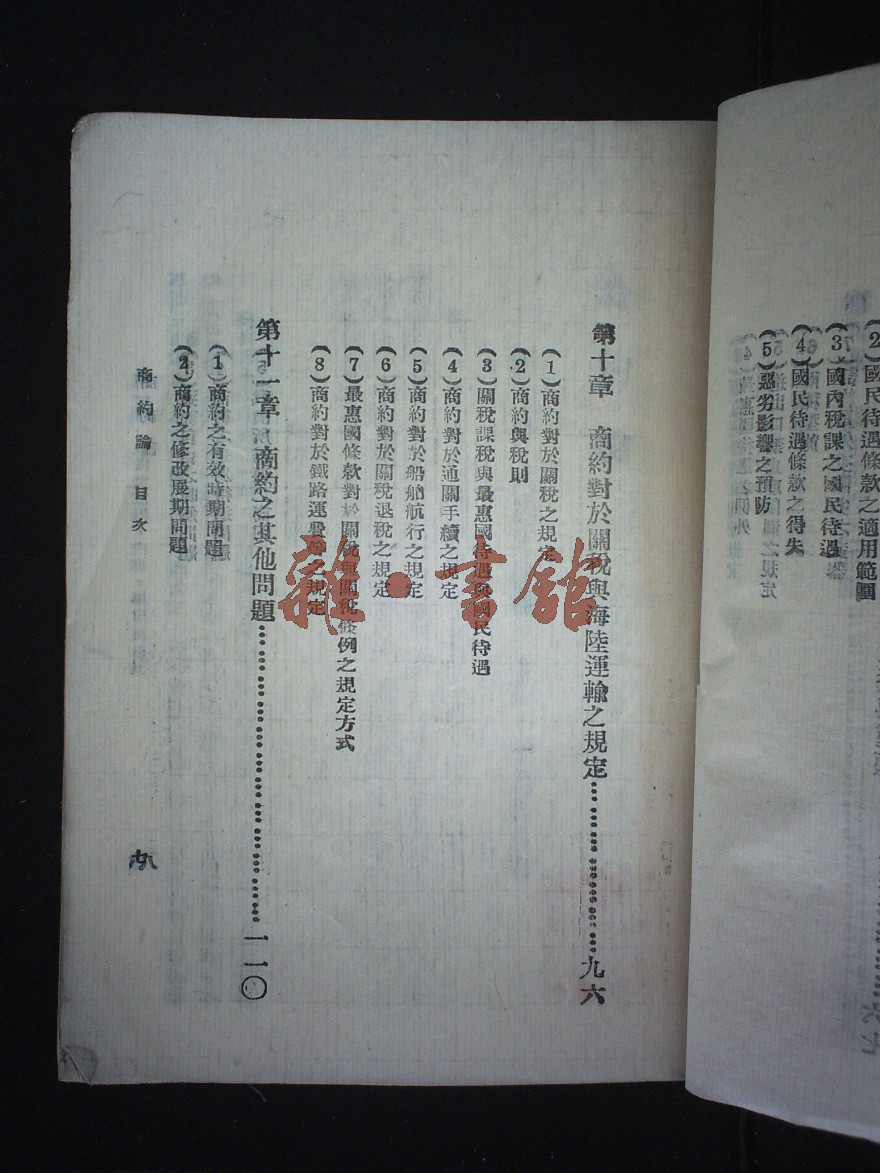 (2)國民待遇條款之適用範圍
(3)國內稅課之國民待遇
(4)國民待遇條款之得失
(5)惡劣影響之預防
第十章 商約對於關稅與海陸運輸之規定……………………九六
(1)商約對於關稅之規定
(2)商約與稅則
(3)關稅課稅與最惠國待遇與國民待遇
(4)商約對於通關手續之規定
(5)商約對於船舶航行之規定
(6)商約對於關稅退稅之規定
(7)最惠國條款對於關稅與關稅條例之規定方式
(8)商約對於鐵路運費等之規定
第十一章 商約之其他問題……………………一一〇
(1)商約之有效時期問題
(2)商約之修改展期問題
商約論 目次
雜·書館